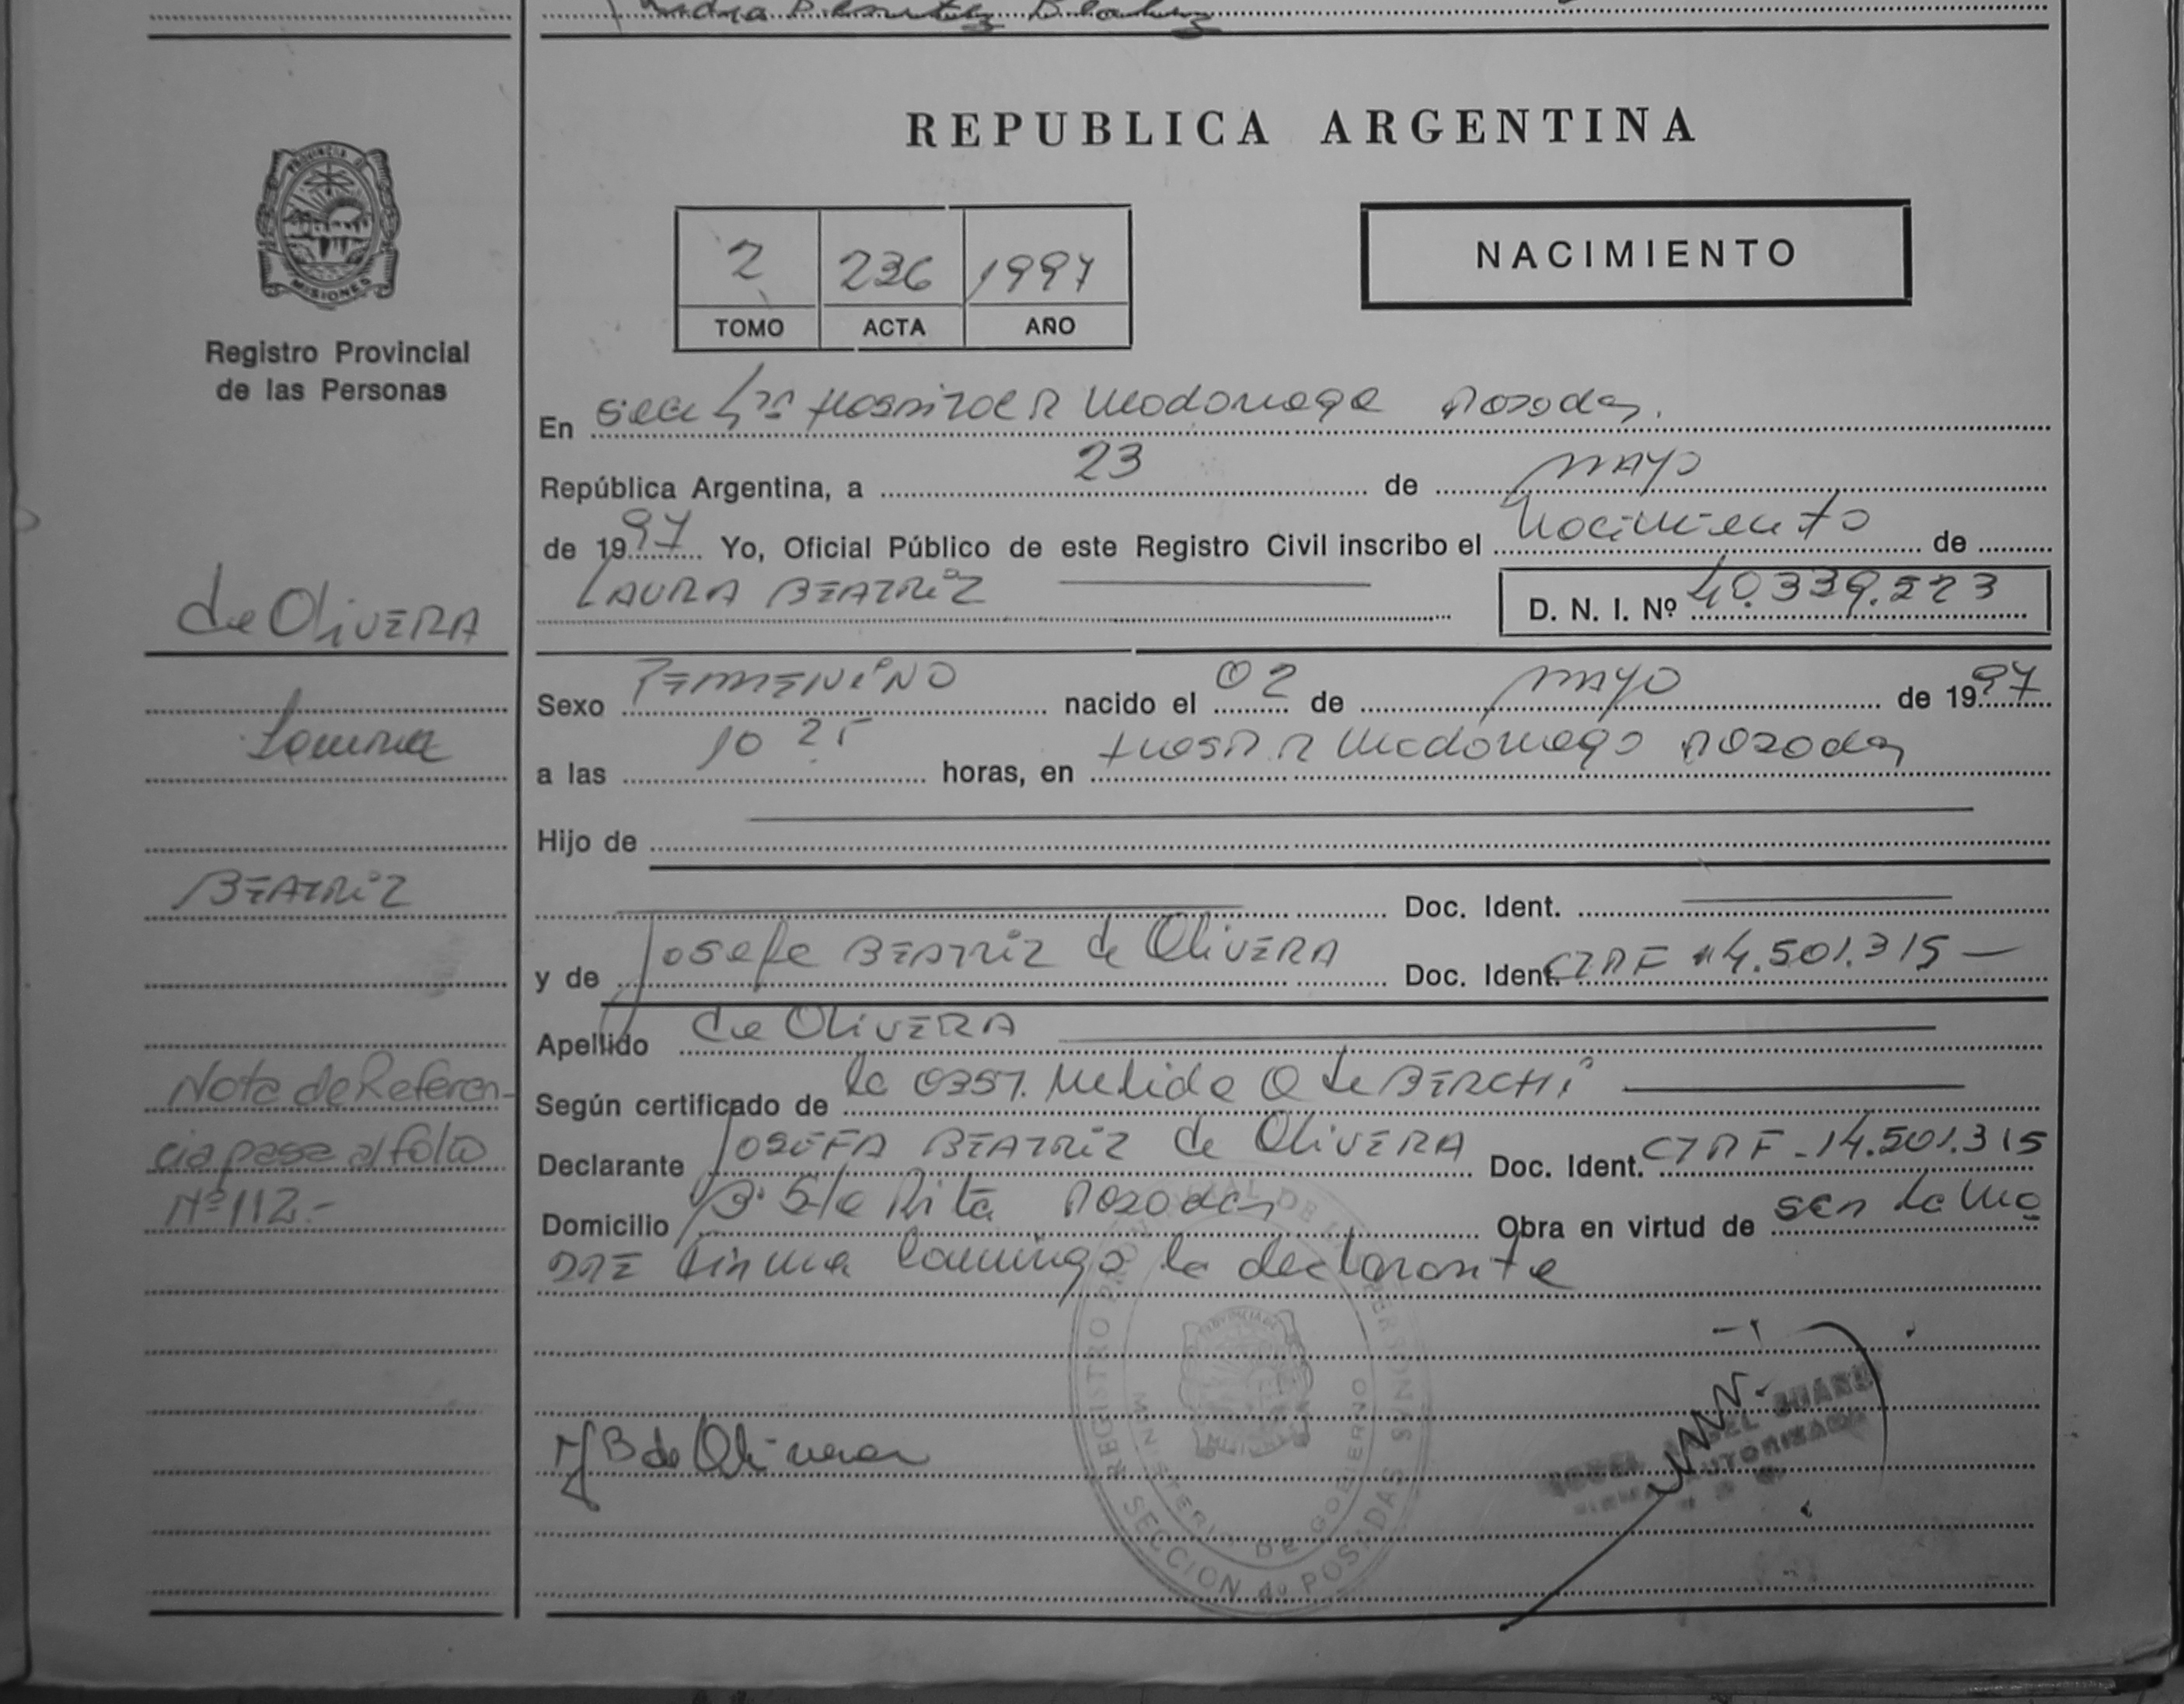 REPUBLICA ARGENTINA
PROVINCIA DE MISIONES
Registro Provincial
de las Personas
2 236 1997
TOMO ACTA AÑO
NACIMIENTO
En Posadas.
República Argentina, a 23 de MAYO
de 1997 Yo, Oficial Público de este Registro Civil inscribo el Nacimiento de
LAURA BEATRiZ D. N. I. Nº 40.339.223
de OLiVERA
Laura
BEATRiZ
Nota de Referen-
cia pasa al folio
Nº 112.-
Sexo FEMENiNO nacido el 02 de MAYO de 1997
a las 10 25 horas, en Hosp. R Madariaga Posadas
Hijo de
Doc. Ident.
y de Josefa BEATRiZ de OLiVERA Doc. Ident. 14.501.315
Apellido de OLiVERA
Según certificado de la Obst. Nelida
Declarante JOSEFA BEATRiZ de OLiVERA Doc. Ident. 14.501.315
Domicilio Bº Sta Rita Posadas Obra en virtud de ser la ma
DRE firma conmigo la declarante
J B de Olivera
REGISTRO PROVINCIAL DE LAS PERSONAS
MINISTERIO DE GOBIERNO
SECCION 4º POSADAS
AUTORIZADA